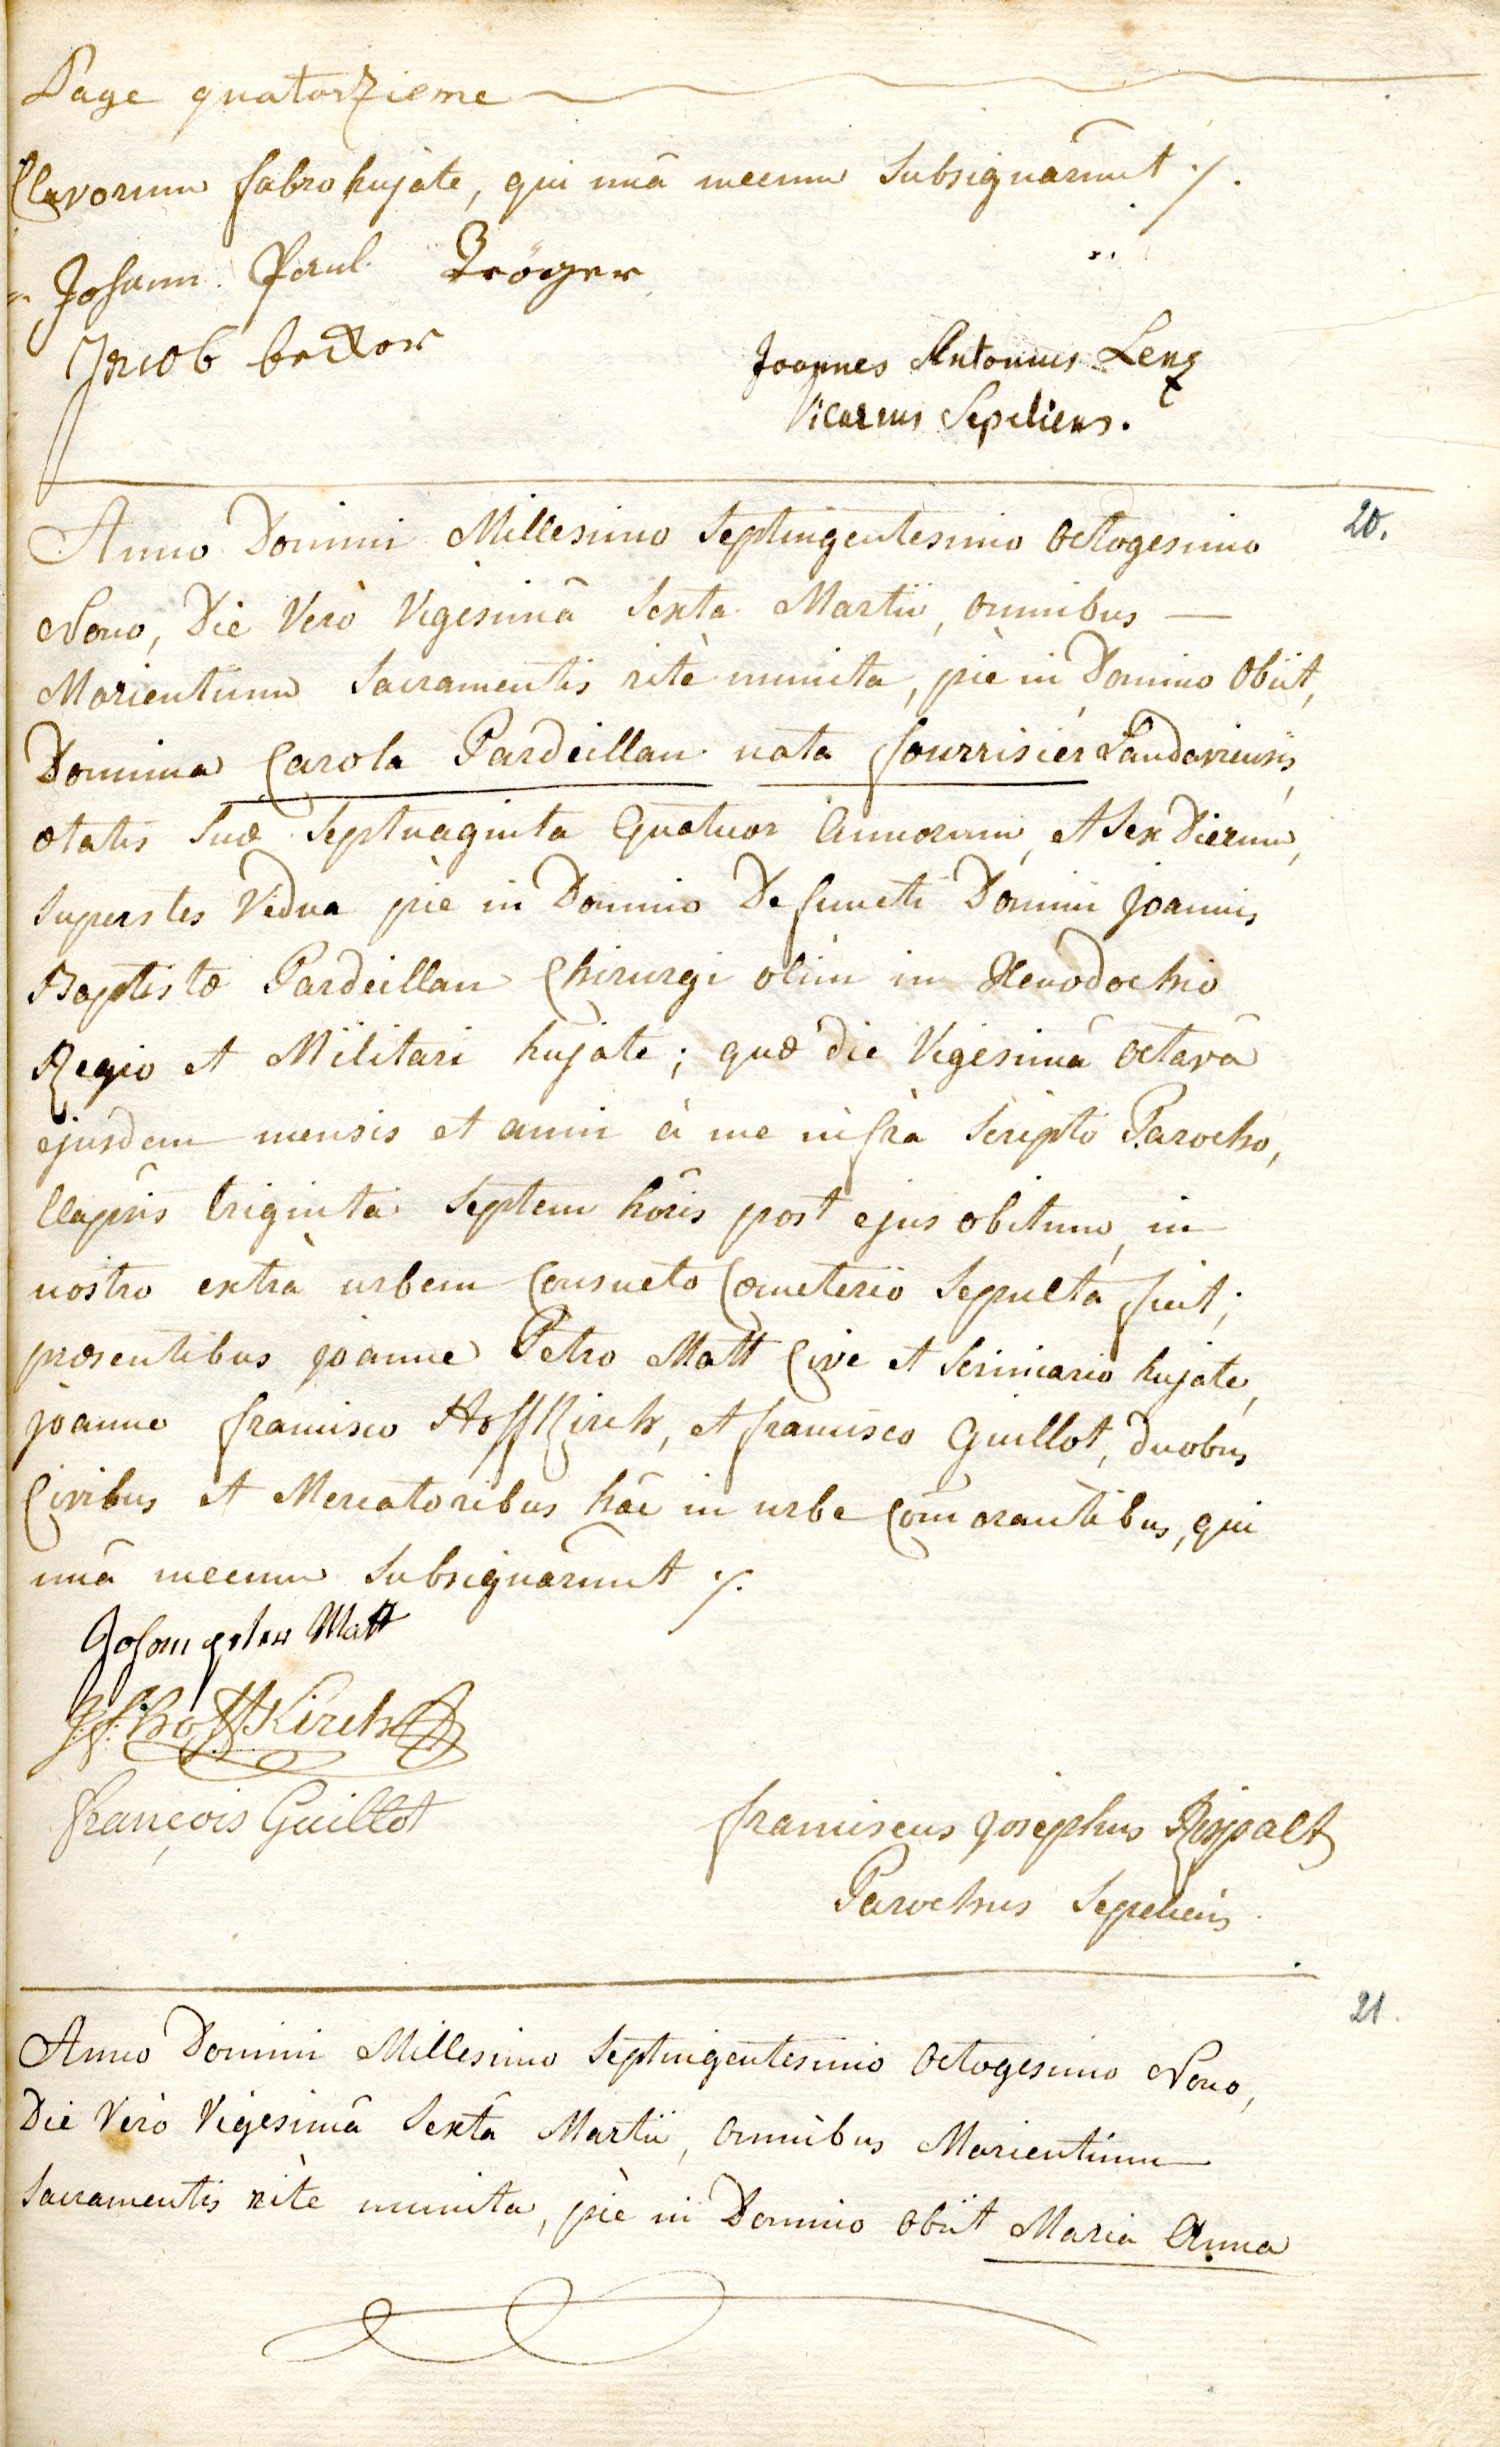 Page quatorzieme
Clavorum fabro hujate, qui unâ mecum Subsignarûnt ·/.
Johann Paul Tröger
Jacob becker
Joannes Antonius Lenz
Vicarius Sepeliens.
20.
Anno Domini Millesimo Septingentesimo Octogesimo
Nono, Die Verò Vigesimâ Sexta Martii, omnibus —
Morientium Sacramentis ritè munita, piè in Domino Obiit,
Domina Carola Pardeillan nata fourrisier Landaviensis,
ætatis Suæ Septuaginta Quatuor Annorum, et Sex Dierum,
Superstes Vidua piè in Domino Defuncti Domini Joannis
Baptistæ Pardeillan Chirurgi olim in Xenodochio
Regio et Militari hujate; quæ die Vigesimâ Octavâ
ejusdem mensis et anni à me infrà Scripto Parocho,
Elapsis triginta Septem horis post ejus obitum, in
nostro extrà urbem Consueto Cœmeterio Sepulta fuit;
præsentibus joanne Petro Matt Cive et Scriniario hujate,
joanne francisco Hoffkirch, et francisco Guillot, duobus
Civibus et Mercatoribus hâc in urbe Com̄orantibus, qui
unâ mecum Subsignarûnt ·/.
Johann peter Matt
J. f. Hoffkirch
françois Guillot
franciscus josephus Rispalt
Parochus Sepeliens
21.
Anno Domini Millesimo Septingentesimo Octogesimo Nono,
Die Verò Vigesimâ Sextâ Martii, omnibus Morientium
Sacramentis ritè munita, piè in Domino Obiit Maria Anna